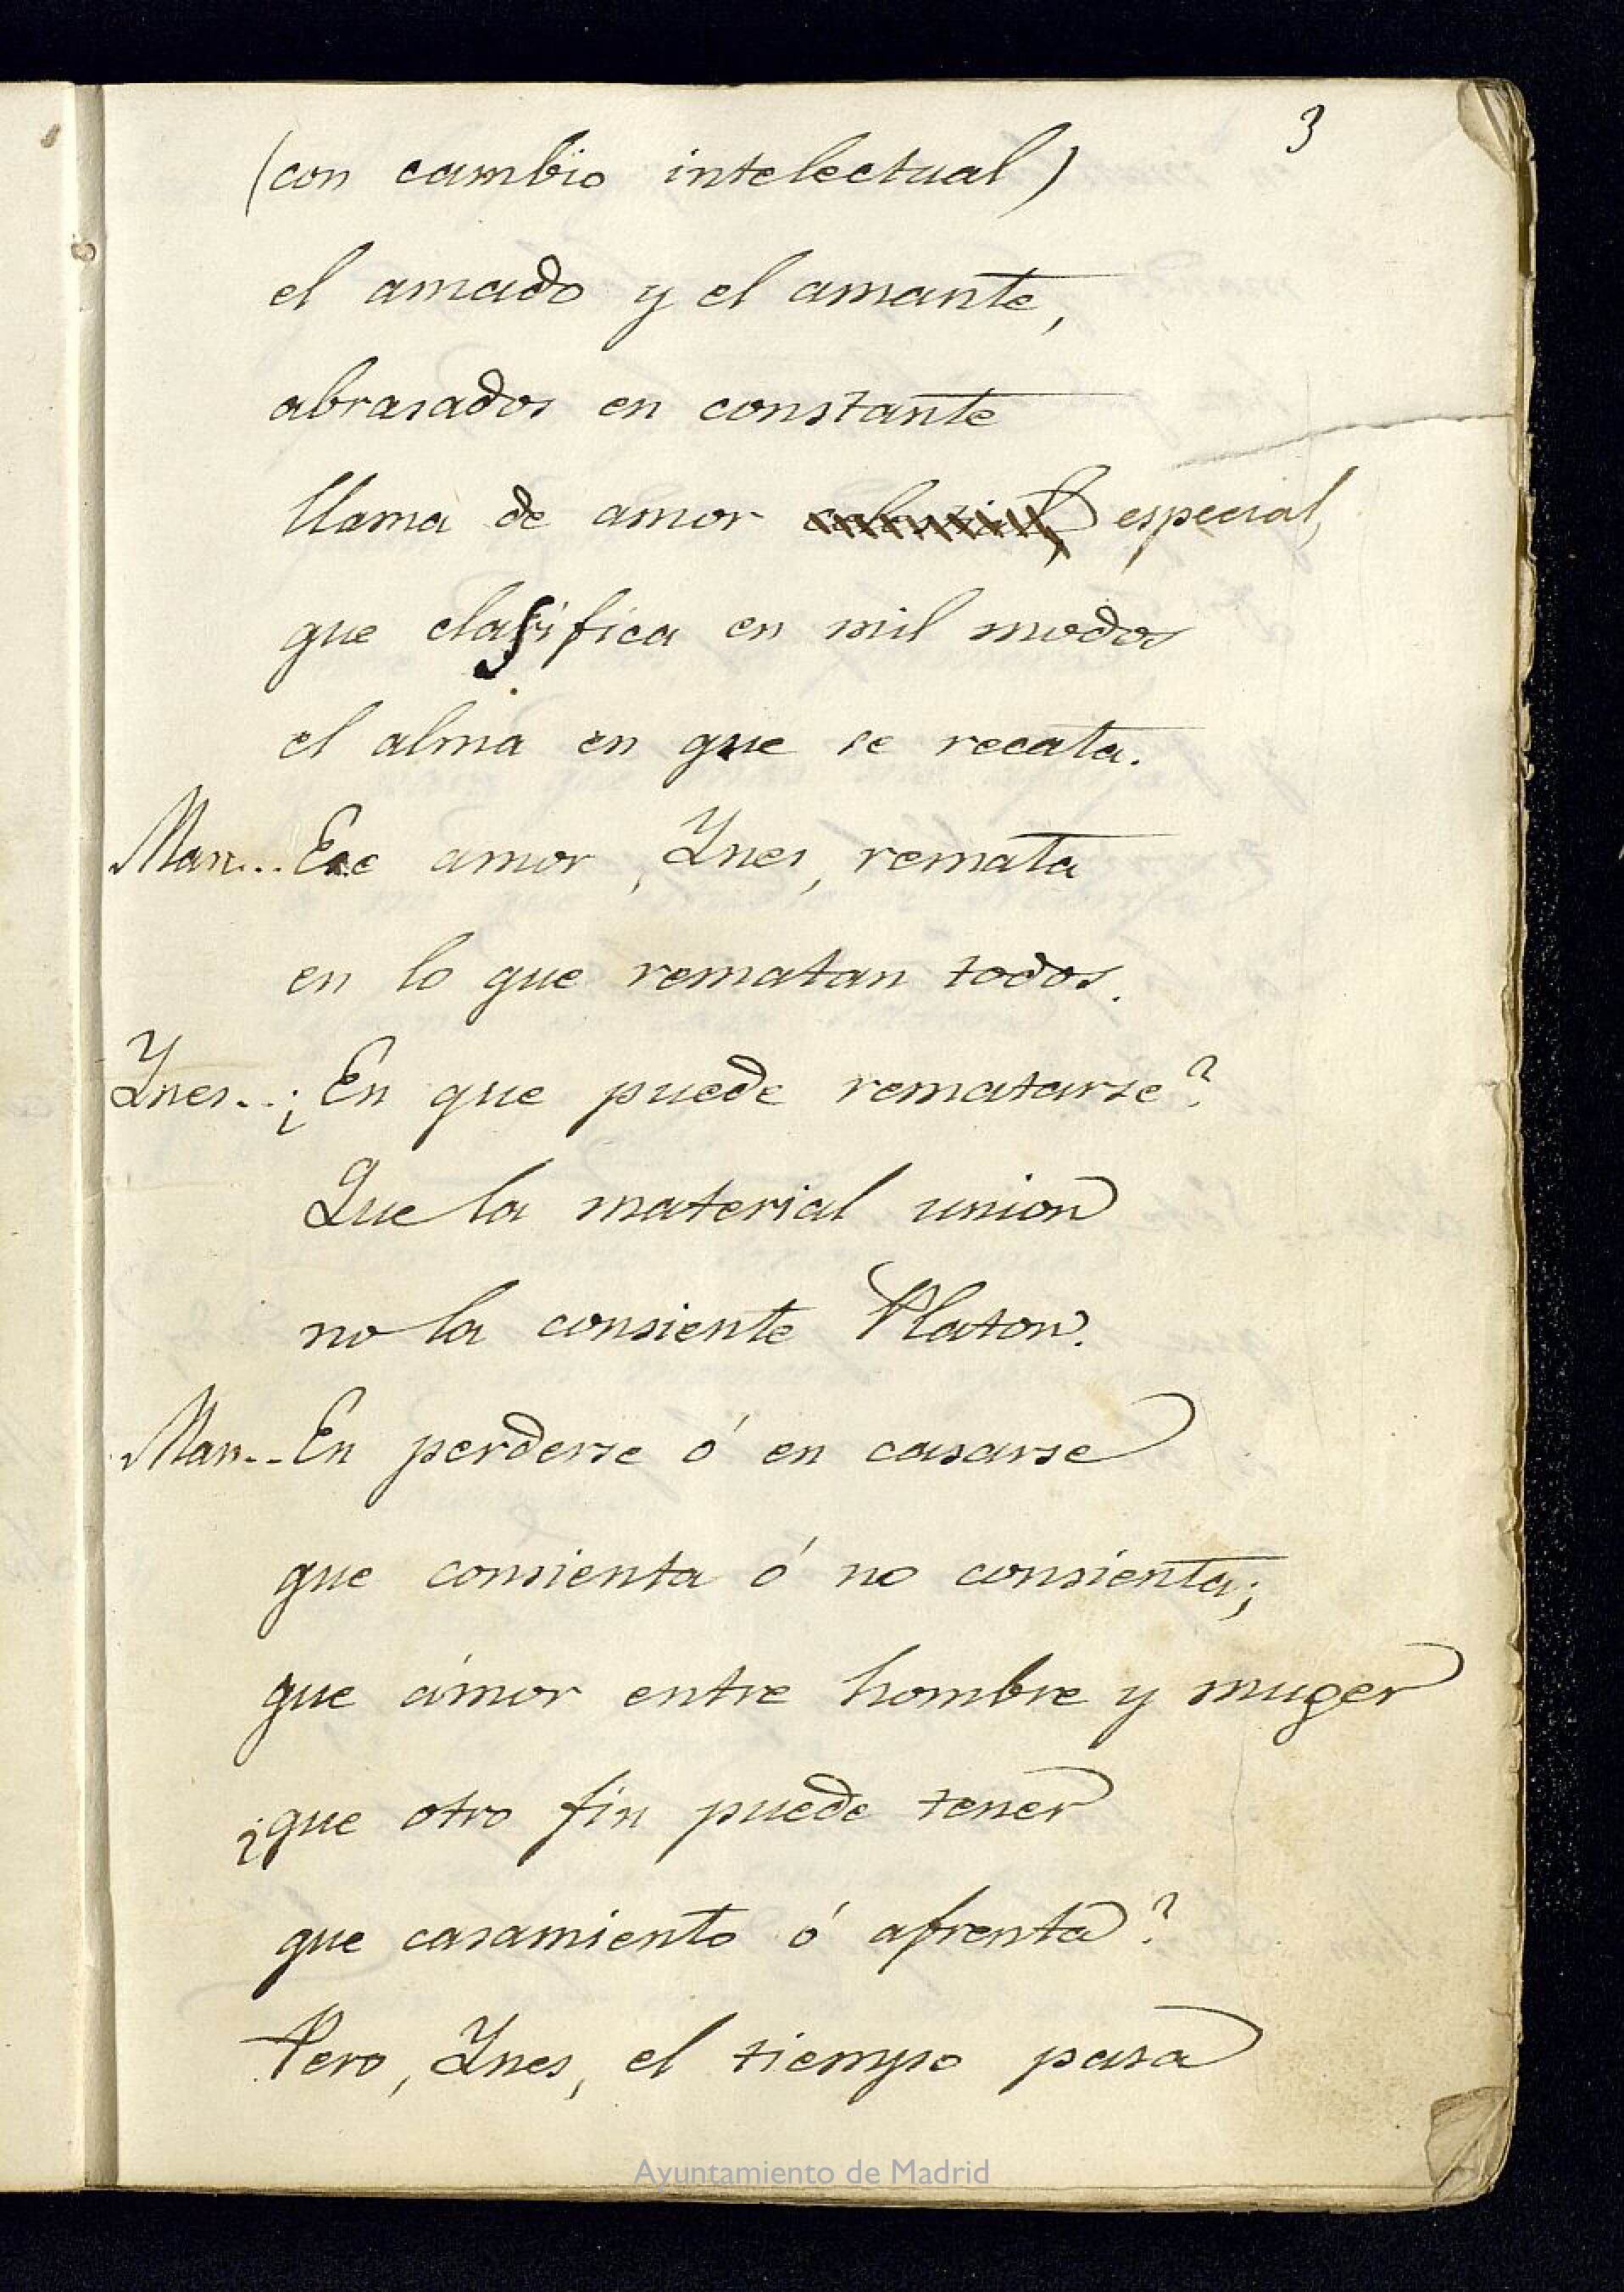 3
(con cambio intelectual)
el amado y el amante,
abrasados en constante
llama de amor especial,
que clasifica en mil modos
el alma en que se recata.
Man... Ese amor, Ynes, remata
en lo que rematan todos.
Ynes... ¿En que puede rematarse?
Que la material union
no la consiente Platon.
Man... En perderse ó en casarse
que consienta ó no consienta;
que ámor entre hombre y muger
¿que otro fin puede tener
que casamiento ó afrenta?
Pero, Ynes, el tiempo pasa
Ayuntamiento de Madrid